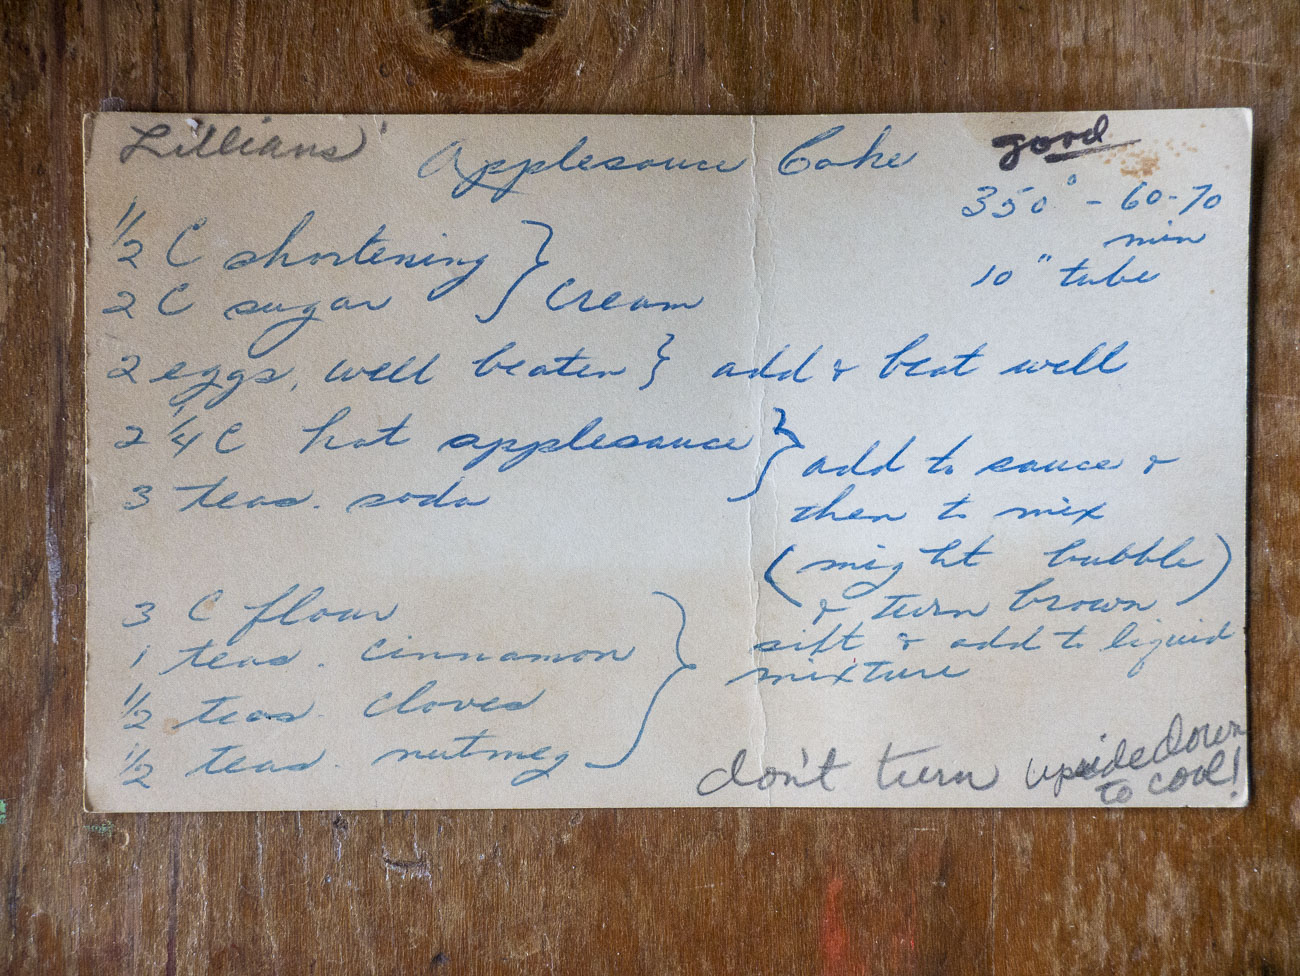 Lillians' Applesauce Cake good
350° - 60-70
min
10" tube
1/2 C shortening
2 C sugar } cream
2 eggs, well beaten } add & beat well
2 1/4 C hot applesauce
3 teas. soda } add to sauce &
then to mix
(might bubble)
& turn brown
3 C flour
1 teas. cinnamon
1/2 teas. cloves
1/2 teas. nutmeg } sift & add to liquid
mixture
don't turn upside down
to cool!